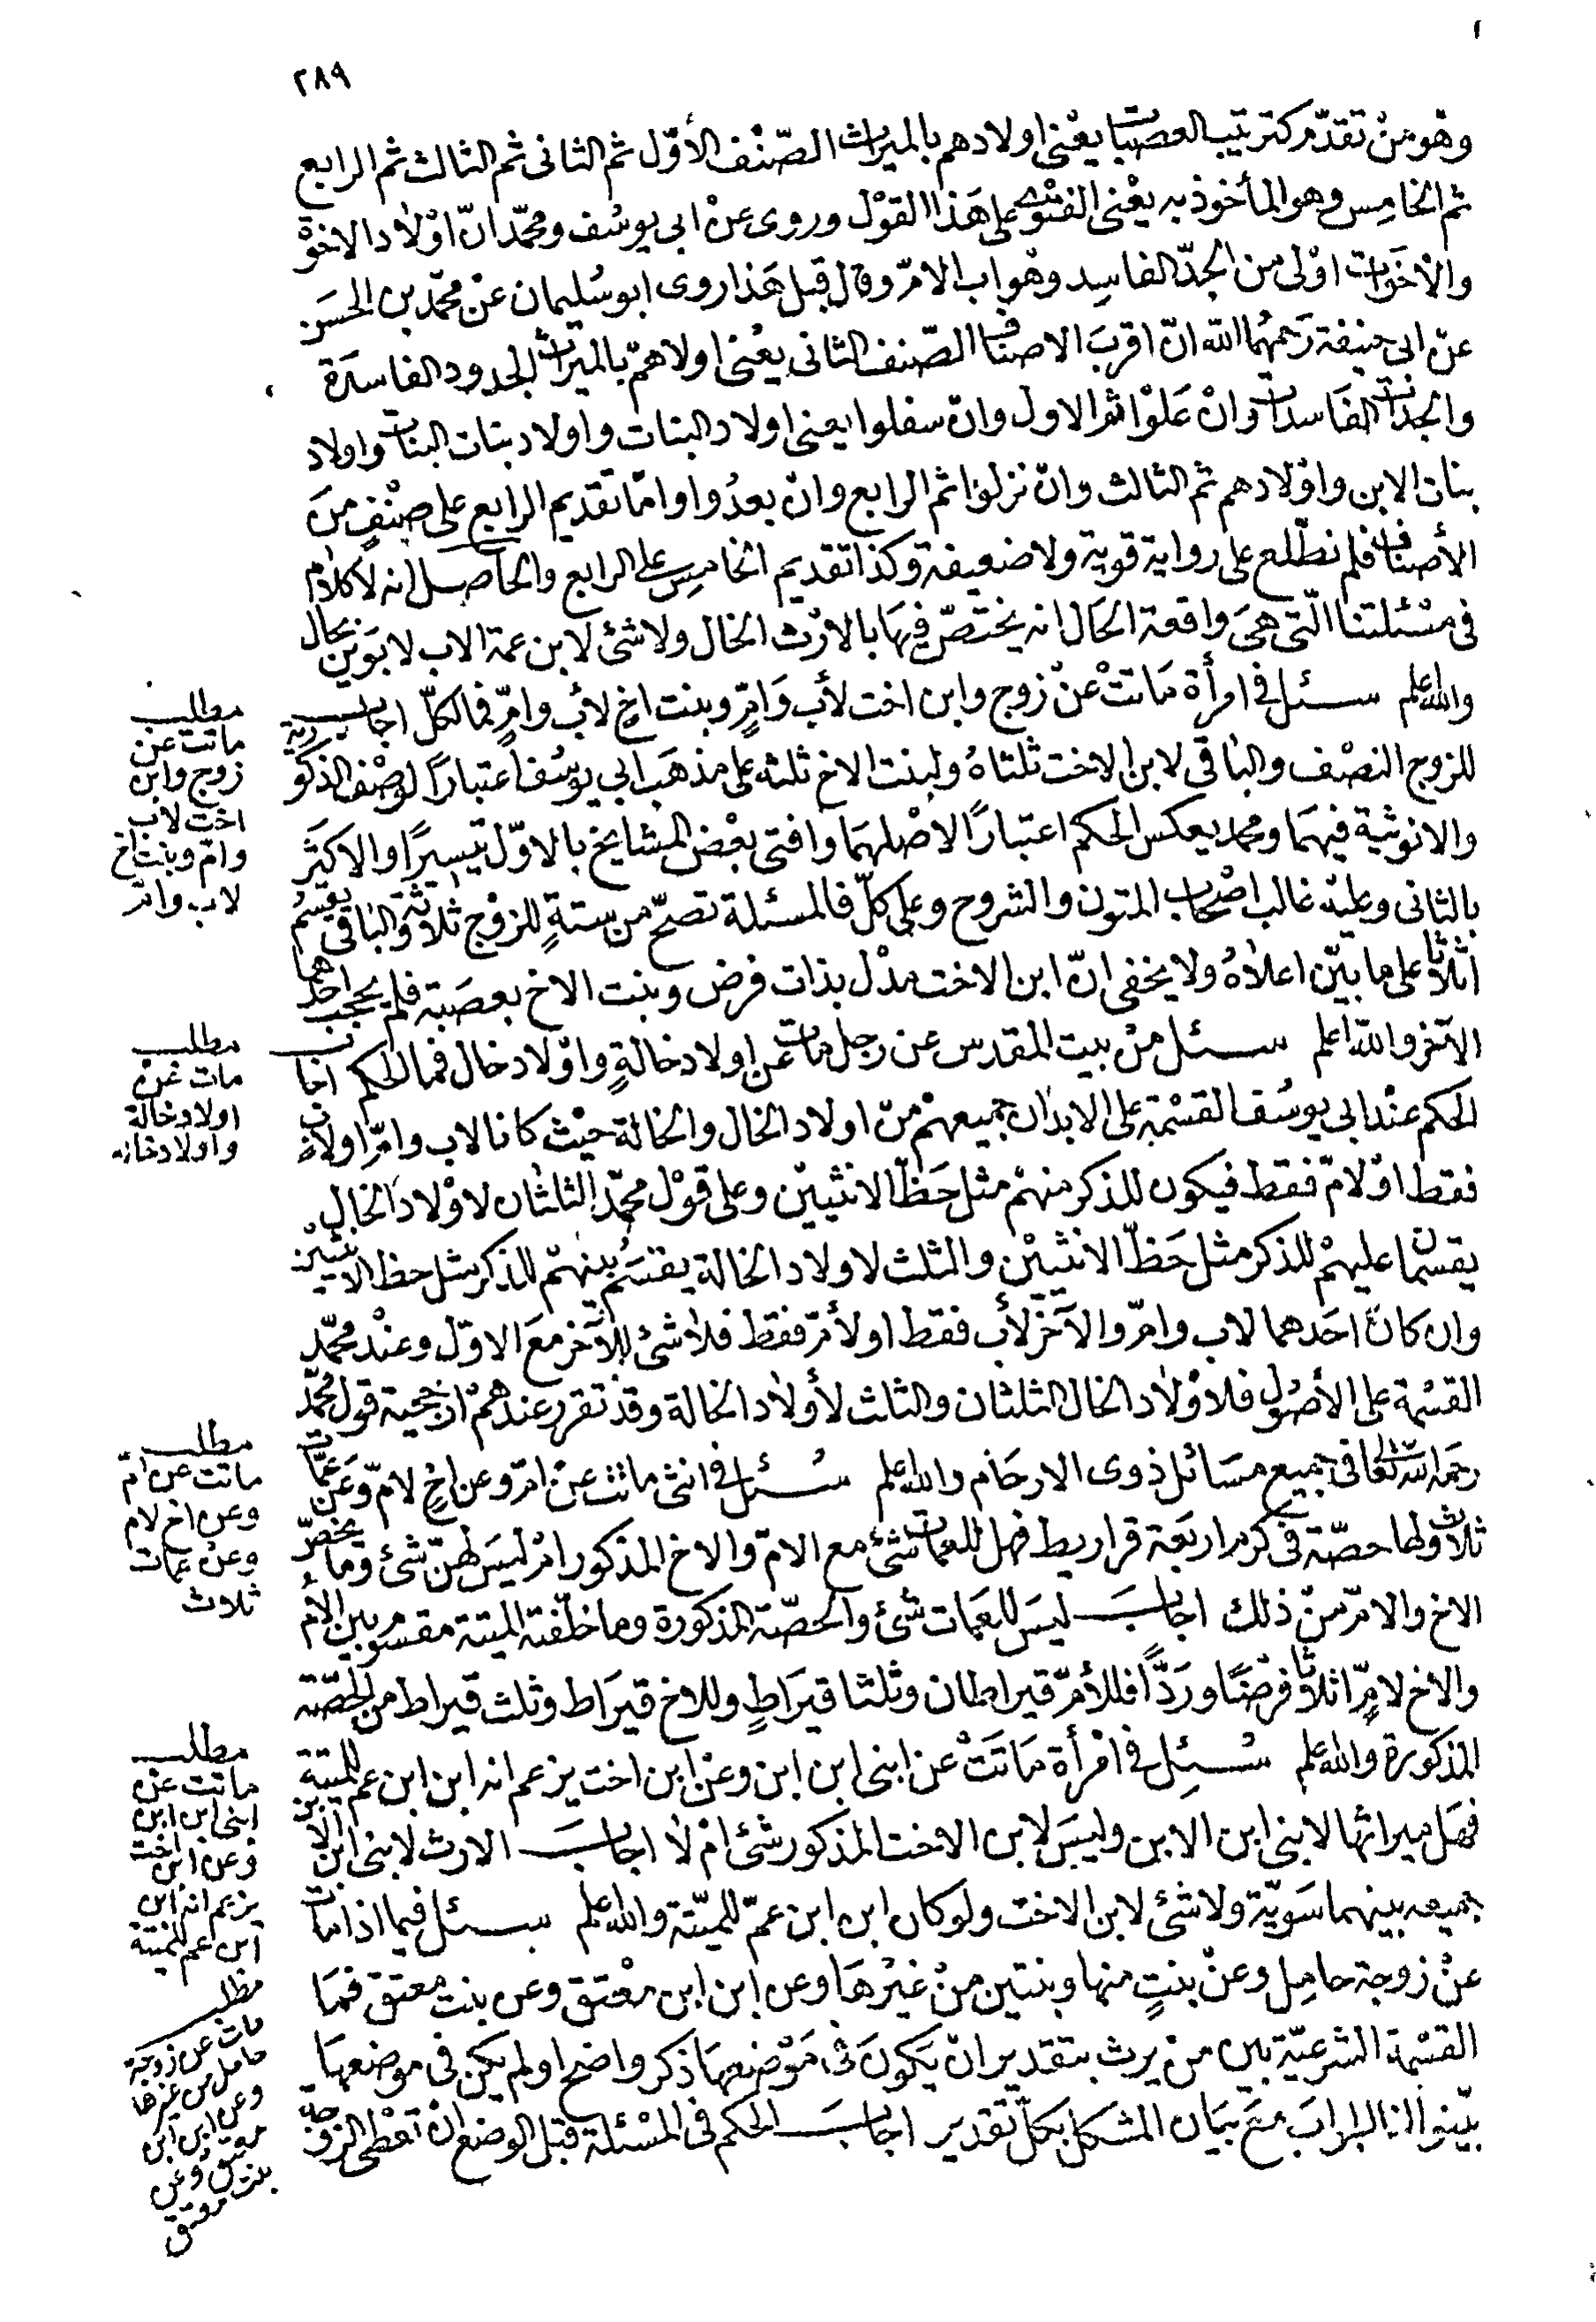 ٢٨٩
وهو من تقدّم كترتيب العصبات يعنى اولادهم بالميراث الصّنف الأوّل ثم الثانى ثم الثالث ثم الرابع
ثم الخامس وهو المأخوذ به يعنى الفتوى على هذا القول وروى عن ابى يوسف ومحمّد انّ اولاد الاخوة
والاخوات اولى من الجدّ الفاسد وهو اب الامّ وقال قبل هذا روى ابو سليمان عن محمّد بن الحسن
عن ابى حنيفة رحمهما الله انّ اقرب الاصناف الصّنف الثانى يعنى اولاهم بالميراث الجدود الفاسدة
والجدات الفاسدات وان علوا ثم الاول وان سفلوا يعنى اولاد البنات واولاد بنات البنات واولاد
بنات الابن واولادهم ثم الثالث وان نزلوا ثم الرابع وان بعدوا وامّا تقديم الرابع على صنف من
الأصناف فلم نطّلع على رواية قوية ولا ضعيفة وكذا تقديم الخامس على الرابع والحاصل انه لا كلام
فى مسئلتنا الّتى هى واقعة الحال انه يختصّ فيها بالارث الخال ولا شئ لابن عمة الاب لابوين بحال
والله اعلم سئل فى امرأة ماتت عن زوج وابن اخت لأب وامّ وبنت اخ لأب وامّ فما لكلّ اجاب
للزوج النصف والباقى لابن الاخت ثلثاه ولبنت الاخ ثلثه على مذهب ابى يوسف اعتبارًا لوصف الذكورية
والانوثية فيهما ومحمد يعكس الحكم اعتبارًا لاصلهما وافتى بعض المشايخ بالاوّل تيسيرًا والاكثر
بالثانى وعليه غالب اصحاب المتون والشروح وعلى كلّ فالمسئلة تصحّ من ستة للزوج ثلاثة والباقى يقسم
اثلاثا على ما بيّن اعلاه ولا يخفى انّ ابن الاخت مدل بذات فرض وبنت الاخ بعصبة فلم يحجب احدهما
الآخر والله اعلم سئل من بيت المقدس عن رجل مات عن اولاد خالة واولاد خال فما الحكم اجاب
الحكم عند ابى يوسف القسمة على الابدان جميعهم من اولاد الخال والخالة حيث كانا لاب وامّ او لاب
فقط او لامّ فقط فيكون للذكر منهم مثل حظّ الانثيين وعلى قول محمّد الثلثان لاولاد الخال
يقسمان عليهم للذكر مثل حظّ الانثيين والثلث لاولاد الخالة يقسم بينهم للذكر مثل حظ الانثيين
وان كان احدهما لاب وامّ والآخر لأب فقط او لأمّ فقط فلا شئ للآخر مع الاوّل وعند محمّد
القسمة على الأصول فلاولاد الخال الثلثان والثلث لأولاد الخالة وقد تقرر عندهم ارجحية قول محمّد
رحمه الله تعالى فى جميع مسائل ذوى الارحام والله اعلم سئل فى انثى ماتت عن امّ وعن اخ لامّ وعن عمّات
ثلاث ولها حصّة فى كرم اربعة قراريط فهل للعمات شئ مع الامّ والاخ المذكور ام ليس لهنّ شئ وما يخصّ
الاخ والامّ من ذلك اجاب ليس للعمات شئ والحصّة المذكورة وما خلّفته الميتة مقسوم بين الأم
والاخ لامّ اثلاثا فرضًا وردًّا فللأمّ قيراطان وثلثا قيراط وللاخ قيراط وثلث قيراط من الحصّة
المذكورة والله اعلم سئل فى امرأة ماتت عن ابنى ابن ابن وعن ابن اخت يزعم انه ابن ابن عم للميتة
فهل ميراثها لابنى ابن الابن وليس لابن الاخت المذكور شئ ام لا اجاب الارث لابنى ابن الابن
جميعه بينهما سويّة ولا شئ لابن الاخت ولو كان ابن ابن عمّ للميّتة والله اعلم سئل فيما اذا مات
عن زوجة حامل وعن بنت منها وبنتين من غيرها وعن ابن ابن معتق وعن بنت معتق فما
القسمة الشرعيّة بين من يرث بتقدير ان يكون فى موضعها ذكر واضح او لم يكن فى موضعها
بيّنوا لنا الجواب مع بيان المشكل بكلّ تقدير اجاب الحكم فى المسئلة قبل الوضع ان تعطى الزوجة
مطلب
ماتت عن
زوج وابن
اخت لاب
وامّ وبنت اخ
لاب وامّ
مطلب
مات عن
اولاد خالة
واولاد خال
مطلب
ماتت عن امّ
وعن اخ لام
وعن عمات
ثلاث
مطلب
ماتت عن
ابنى ابن ابن
وعن ابن اخت
يزعم انه ابن
ابن عم للميتة
مطلب
مات عن زوجة
حامل من غيرها
وعن ابن ابن
معتق وعن
بنت معتق